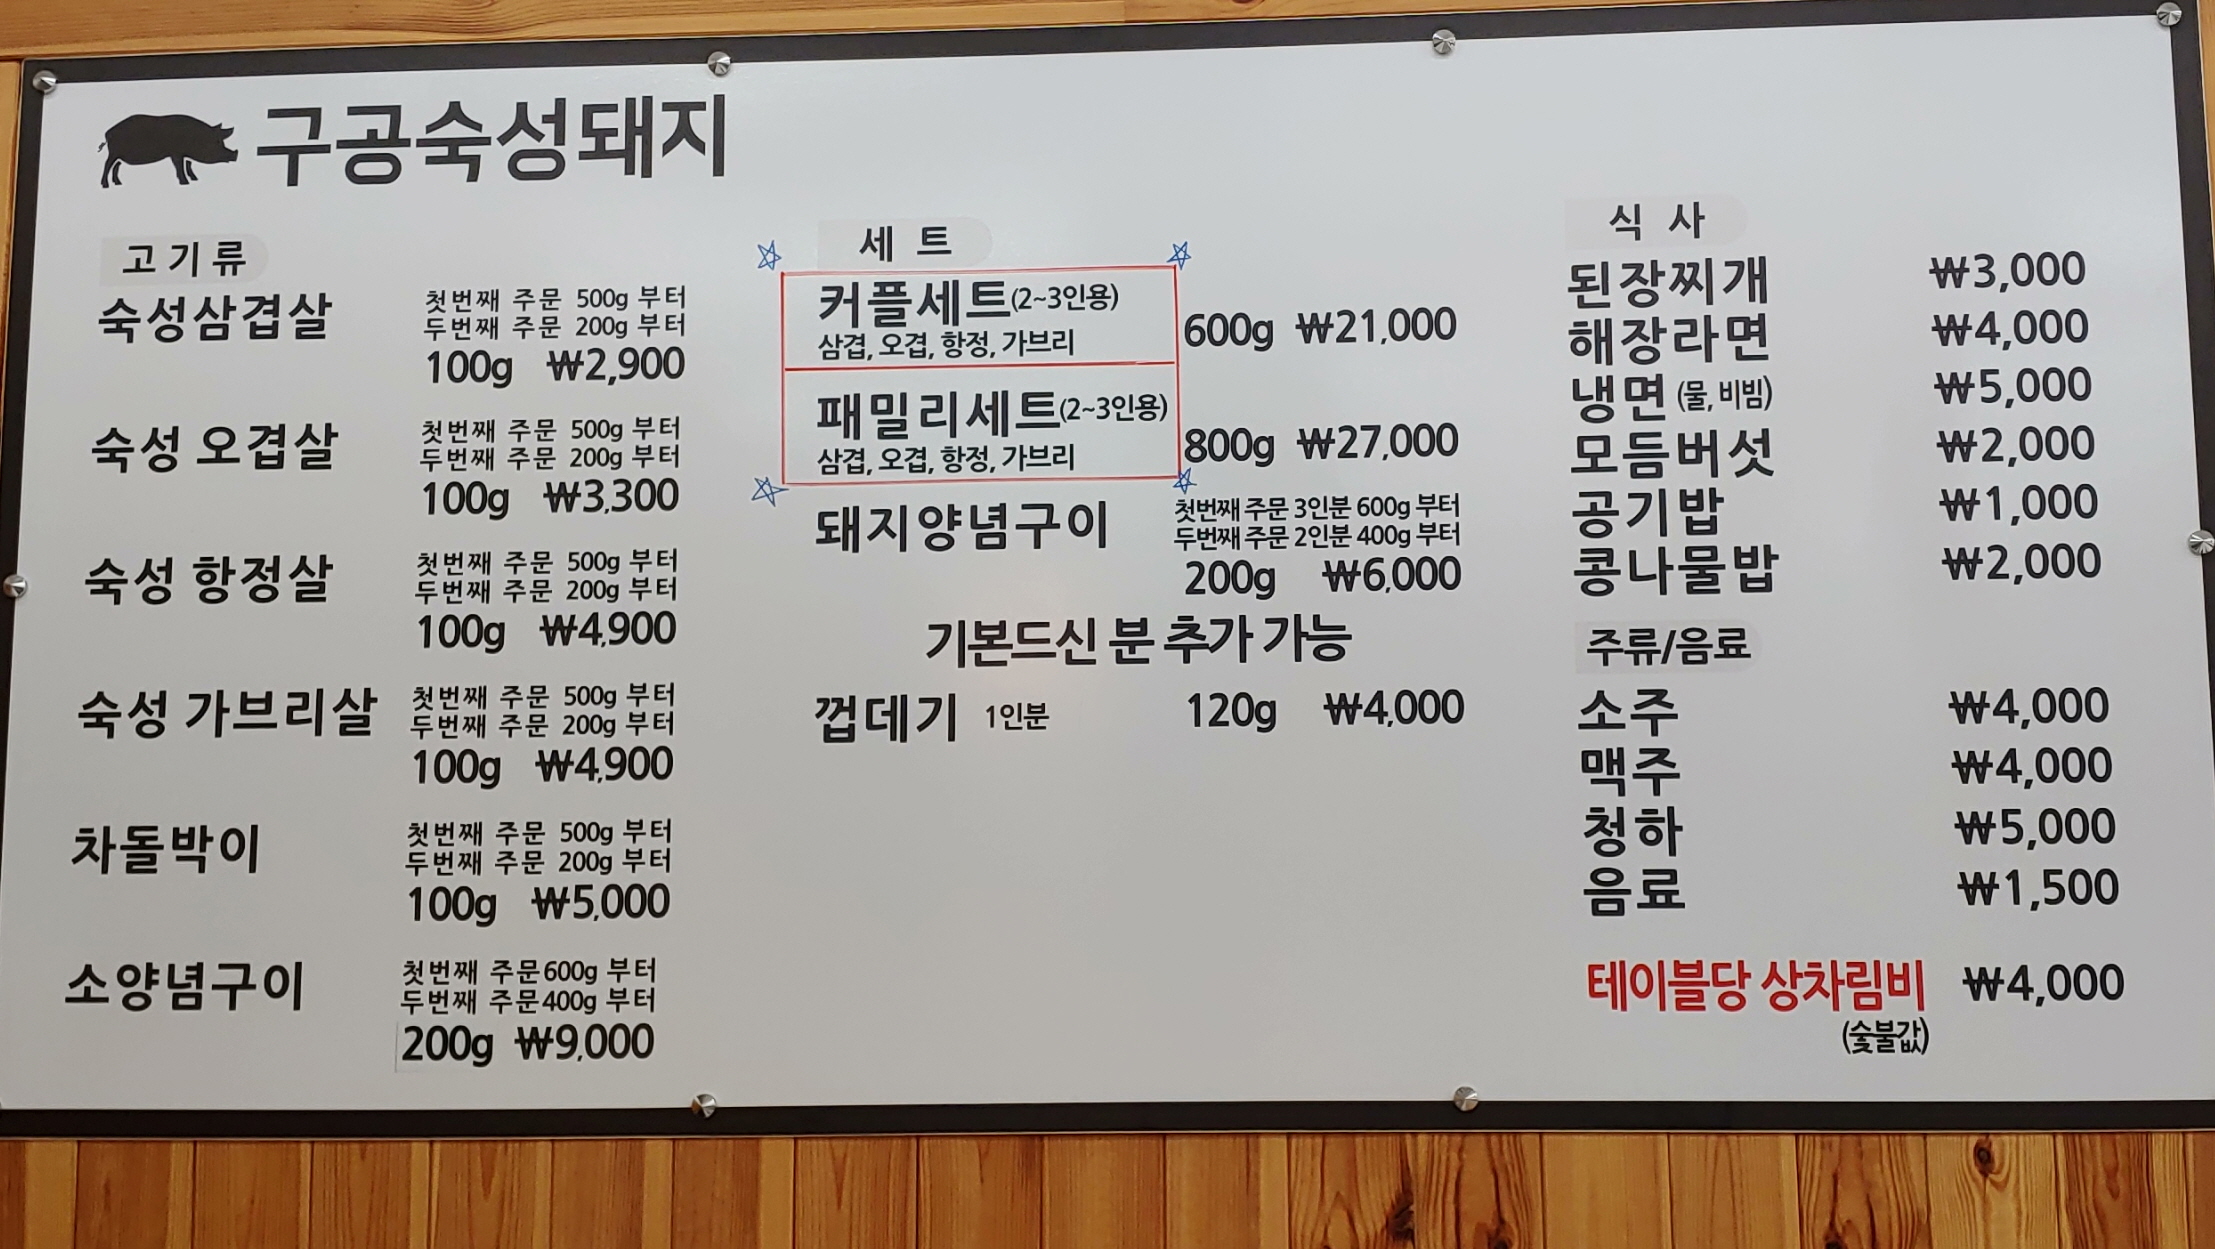 구공숙성돼지
고기류
숙성삼겹살
첫번째 주문 500g 부터
두번째 주문 200g 부터
100g ₩2,900
숙성 오겹살
첫번째 주문 500g 부터
두번째 주문 200g 부터
100g ₩3,300
숙성 항정살
첫번째 주문 500g 부터
두번째 주문 200g 부터
100g ₩4,900
숙성 가브리살
첫번째 주문 500g 부터
두번째 주문 200g 부터
100g ₩4,900
차돌박이
첫번째 주문 500g 부터
두번째 주문 200g 부터
100g ₩5,000
소양념구이
첫번째 주문600g 부터
두번째 주문400g 부터
200g ₩9,000
세 트
커플세트(2~3인용)
삼겹, 오겹, 항정, 가브리
600g ₩21,000
패밀리세트(2~3인용)
삼겹, 오겹, 항정, 가브리
800g ₩27,000
돼지양념구이
첫번째 주문 3인분 600g 부터
두번째 주문 2인분 400g 부터
200g ₩6,000
기본드신 분 추가 가능
껍데기 1인분 120g ₩4,000
식 사
된장찌개 ₩3,000
해장라면 ₩4,000
냉면 (물, 비빔) ₩5,000
모듬버섯 ₩2,000
공기밥 ₩1,000
콩나물밥 ₩2,000
주류/음료
소주 ₩4,000
맥주 ₩4,000
청하 ₩5,000
음료 ₩1,500
테이블당 상차림비 ₩4,000
(숯불값)